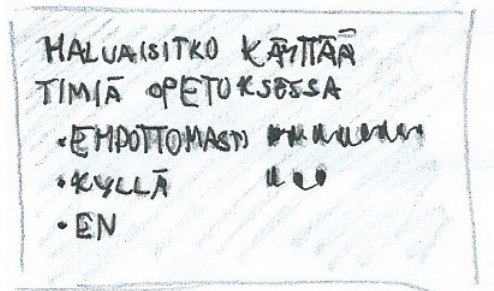 HALUAISITKO KÄYTTÄÄ
TIMIÄ OPETUKSESSA
• EHDOTTOMASTI
• KYLLÄ
• EN